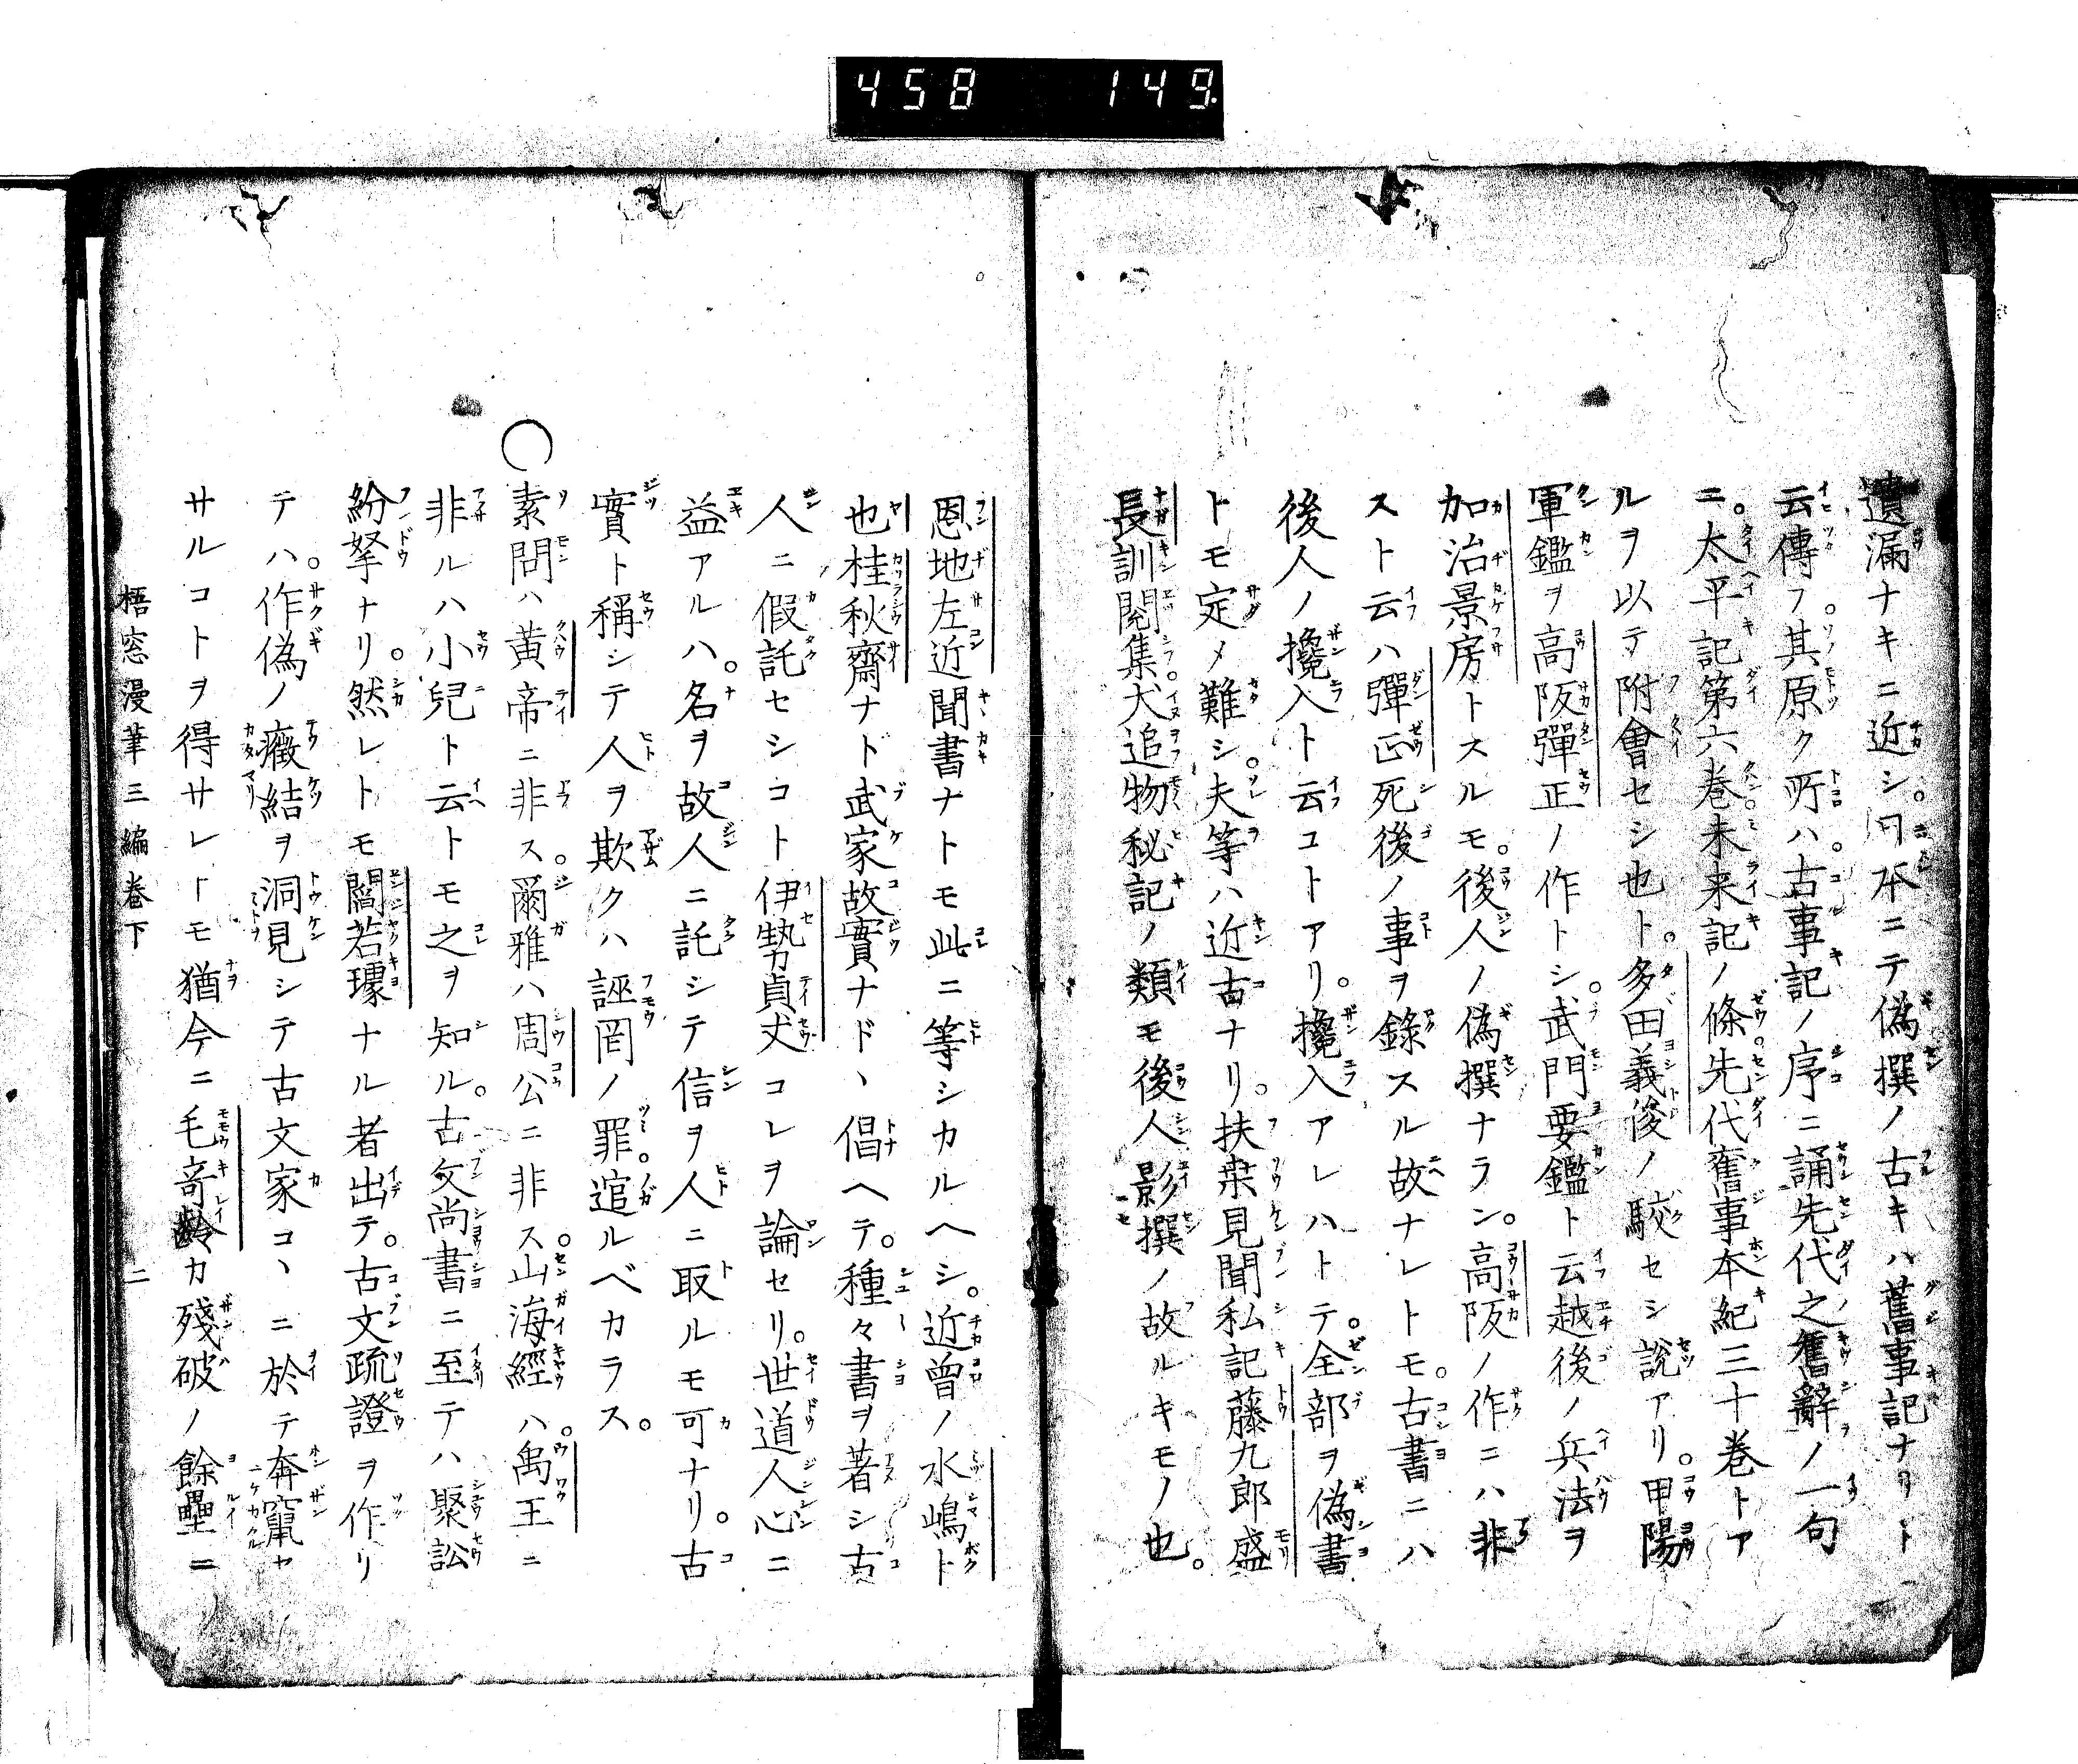 458 149
遺漏ナキニ近シ。日本ニテ偽撰ノ古キハ舊事記ナリト
云傳フ其原ク所ハ。古事記ノ序ニ誦先代之舊辭ノ一句
ニ。太平記第六巻未来記ノ條先代舊事本紀三十巻トア
ルヲ以テ附會セシ也ト。多田義俊ノ駁セシ説アリ。甲陽
軍鑑ヲ高阪彈正ノ作トシ。武門要鑑ト云越後ノ兵法ヲ
加治景房トスルモ。後人ノ偽撰ナラン。高阪ノ作ニハ非
スト云ハ彈正死後ノ事ヲ錄スル故ナレトモ。古書ニハ
後人ノ攙入ト云コトアリ。攙入アレハトテ。全部ヲ偽書
トモ定メ難シ。夫等ハ近古ナリ。扶桒見聞私記藤九郎盛
長訓閲集犬追物秘記ノ類モ後人影撰ノ故ルキモノ也。
恩地左近聞書ナトモ此ニ等シカルヘシ。近曽ノ水嶋ト
也桂秋齋ナド武家故實ナド、倡ヘテ。種々書ヲ著シ古
人ニ假託セシコト伊勢貞丈コレヲ論セリ。世道人心ニ
益アルハ。名ヲ故人ニ託シテ信ヲ人ニ取ルモ可ナリ。古
實ト稱シテ人ヲ欺クハ誣罔ノ罪。逭ルベカラス。
○素問ハ黄帝ニ非ス。爾雅ハ周公ニ非ス。山海經ハ。禹王ニ
非ルハ小兒ト云トモ之ヲ知ル。古文尚書ニ至テハ聚訟
紛拏ナリ。然レトモ閻若璩ナル者出テ。古文疏證ヲ作リ
テハ。作偽ノ癥結ヲ洞見シテ古文家コヽニ於テ奔竄セ
サルコトヲ得サレトモ猶今ニ毛竒齡カ殘破ノ餘壘ニ
梧窓漫筆三編巻下 二